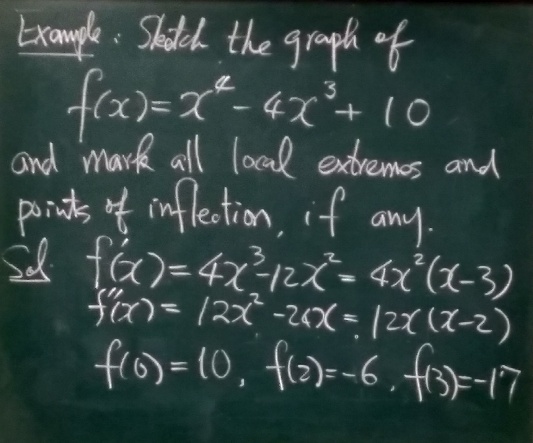 Example: Sketch the graph of
f(x)=x⁴-4x³+10
and mark all local extremos and
points of inflection, if any.
Sol. f'(x)=4x³-12x²=4x²(x-3)
f''(x)=12x²-24x=12x(x-2)
f(0)=10, f(2)=-6, f(3)=-17